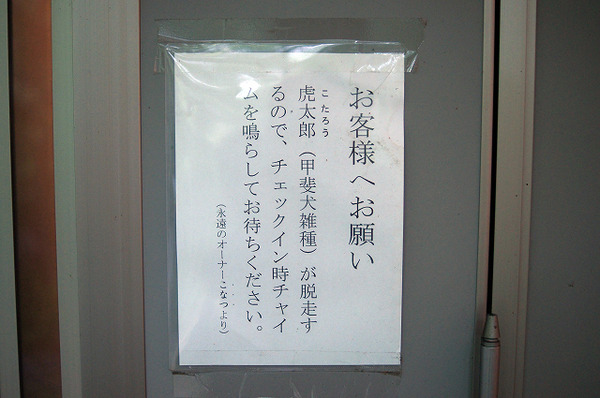 お客様へお願い
こたろう
虎太郎（甲斐犬雑種）が脱走す
るので、チェックイン時チャイ
ムを鳴らしてお待ちください。
（永遠のオーナーこなつより）